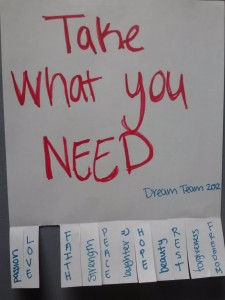 Take
What you
NEED
Dream Team 2012
passion
LOVE
FAITH
strength
PEACE
laughter
HOPE
beauty
REST
forgiveness
FREEDOM